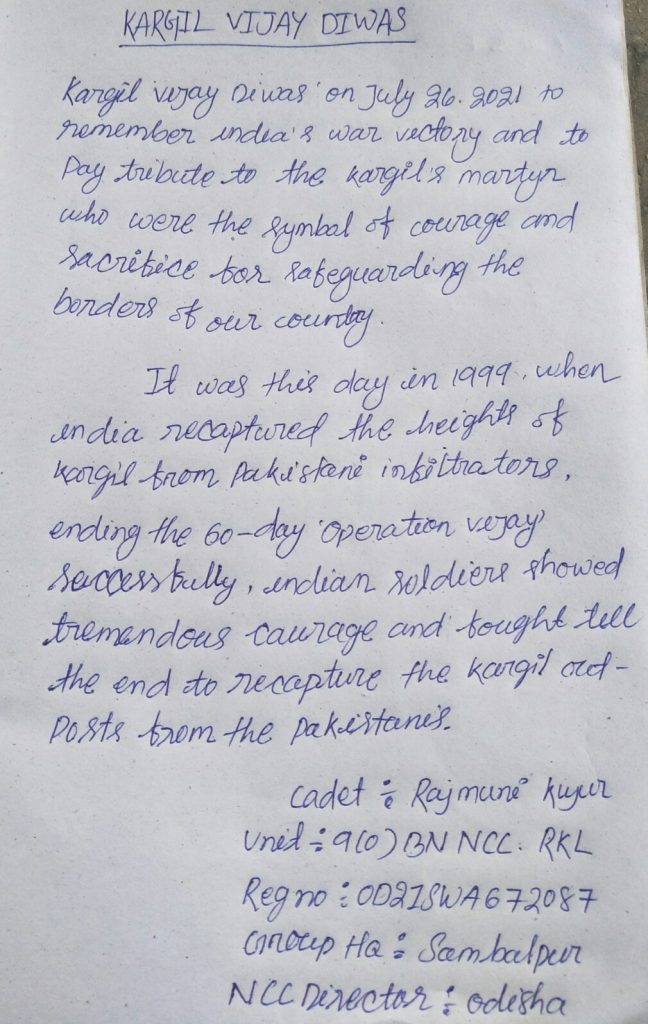 KARGIL VIJAY DIWAS
Kargil vijay Diwas' on July 26. 2021 to
remember india's war victory and to
Pay tribute to the kargil's martyr
who were the symbol of courage and
sacrifice for safeguarding the
borders of our country.
It was this day in 1999, when
india recaptured the heights of
kargil from Pakistani infiltrators,
ending the 60-day 'Operation vijay'
Successfully, indian soldiers showed
tremendous caurage and fought till
the end to recapture the kargil out-
Posts from the pakistanis.
Cadet : Rajmuni kujur
Unit : 9(0) BN NCC. RKL
Reg no : OD21SWA672087
Group Hq : Sambalpur
NCC Director : odisha